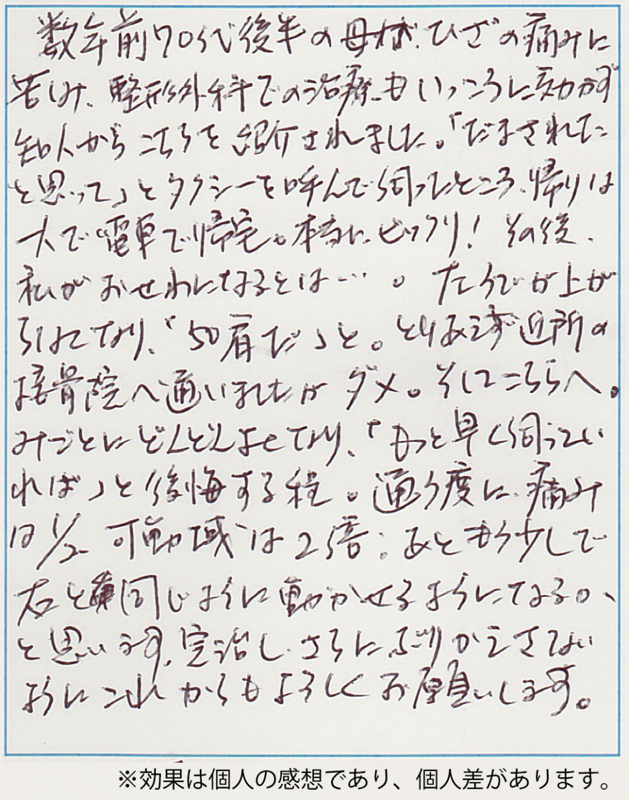 数年前70代後半の母が、ひざの痛みに
苦しみ、整形外科での治療もいっこうに効かず
知人からこちらを紹介されました。「だまされた
と思って」とタクシーを呼んで伺ったところ、帰りは
一人で電車で帰宅。本当にビックリ！その後、
私がおせわになるとは…。左うでが上が
らなくなり、「50肩だ」と。とりあえず近所の
接骨院へ通いましたがダメ。そしてこちらへ。
みごとにどんどんよくなり、「もっと早く伺ってい
れば」と後悔する程。通う度に、痛み
は1/2 可動域は2倍。あともう少しで
右と同じように動かせるようになるか、
と思います。完治し、さらにぶりかえさない
ようにこれからもよろしくお願いします。
※効果は個人の感想であり、個人差があります。